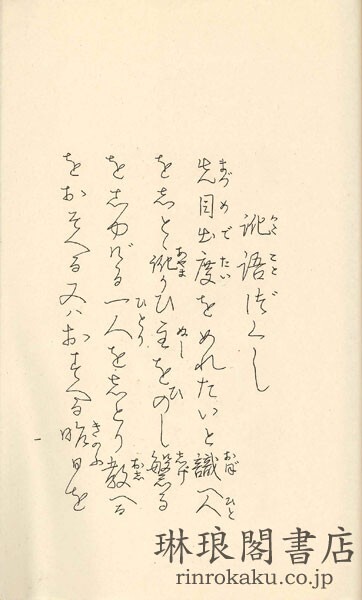 訛語づくし
先目出度をめれたいと識人
をしと ひ主をのし繁る
をしゆげる一人をしとり教へる
をおそへる又ハおすへる昨日を
琳琅閣書店
rinrokaku.co.jp